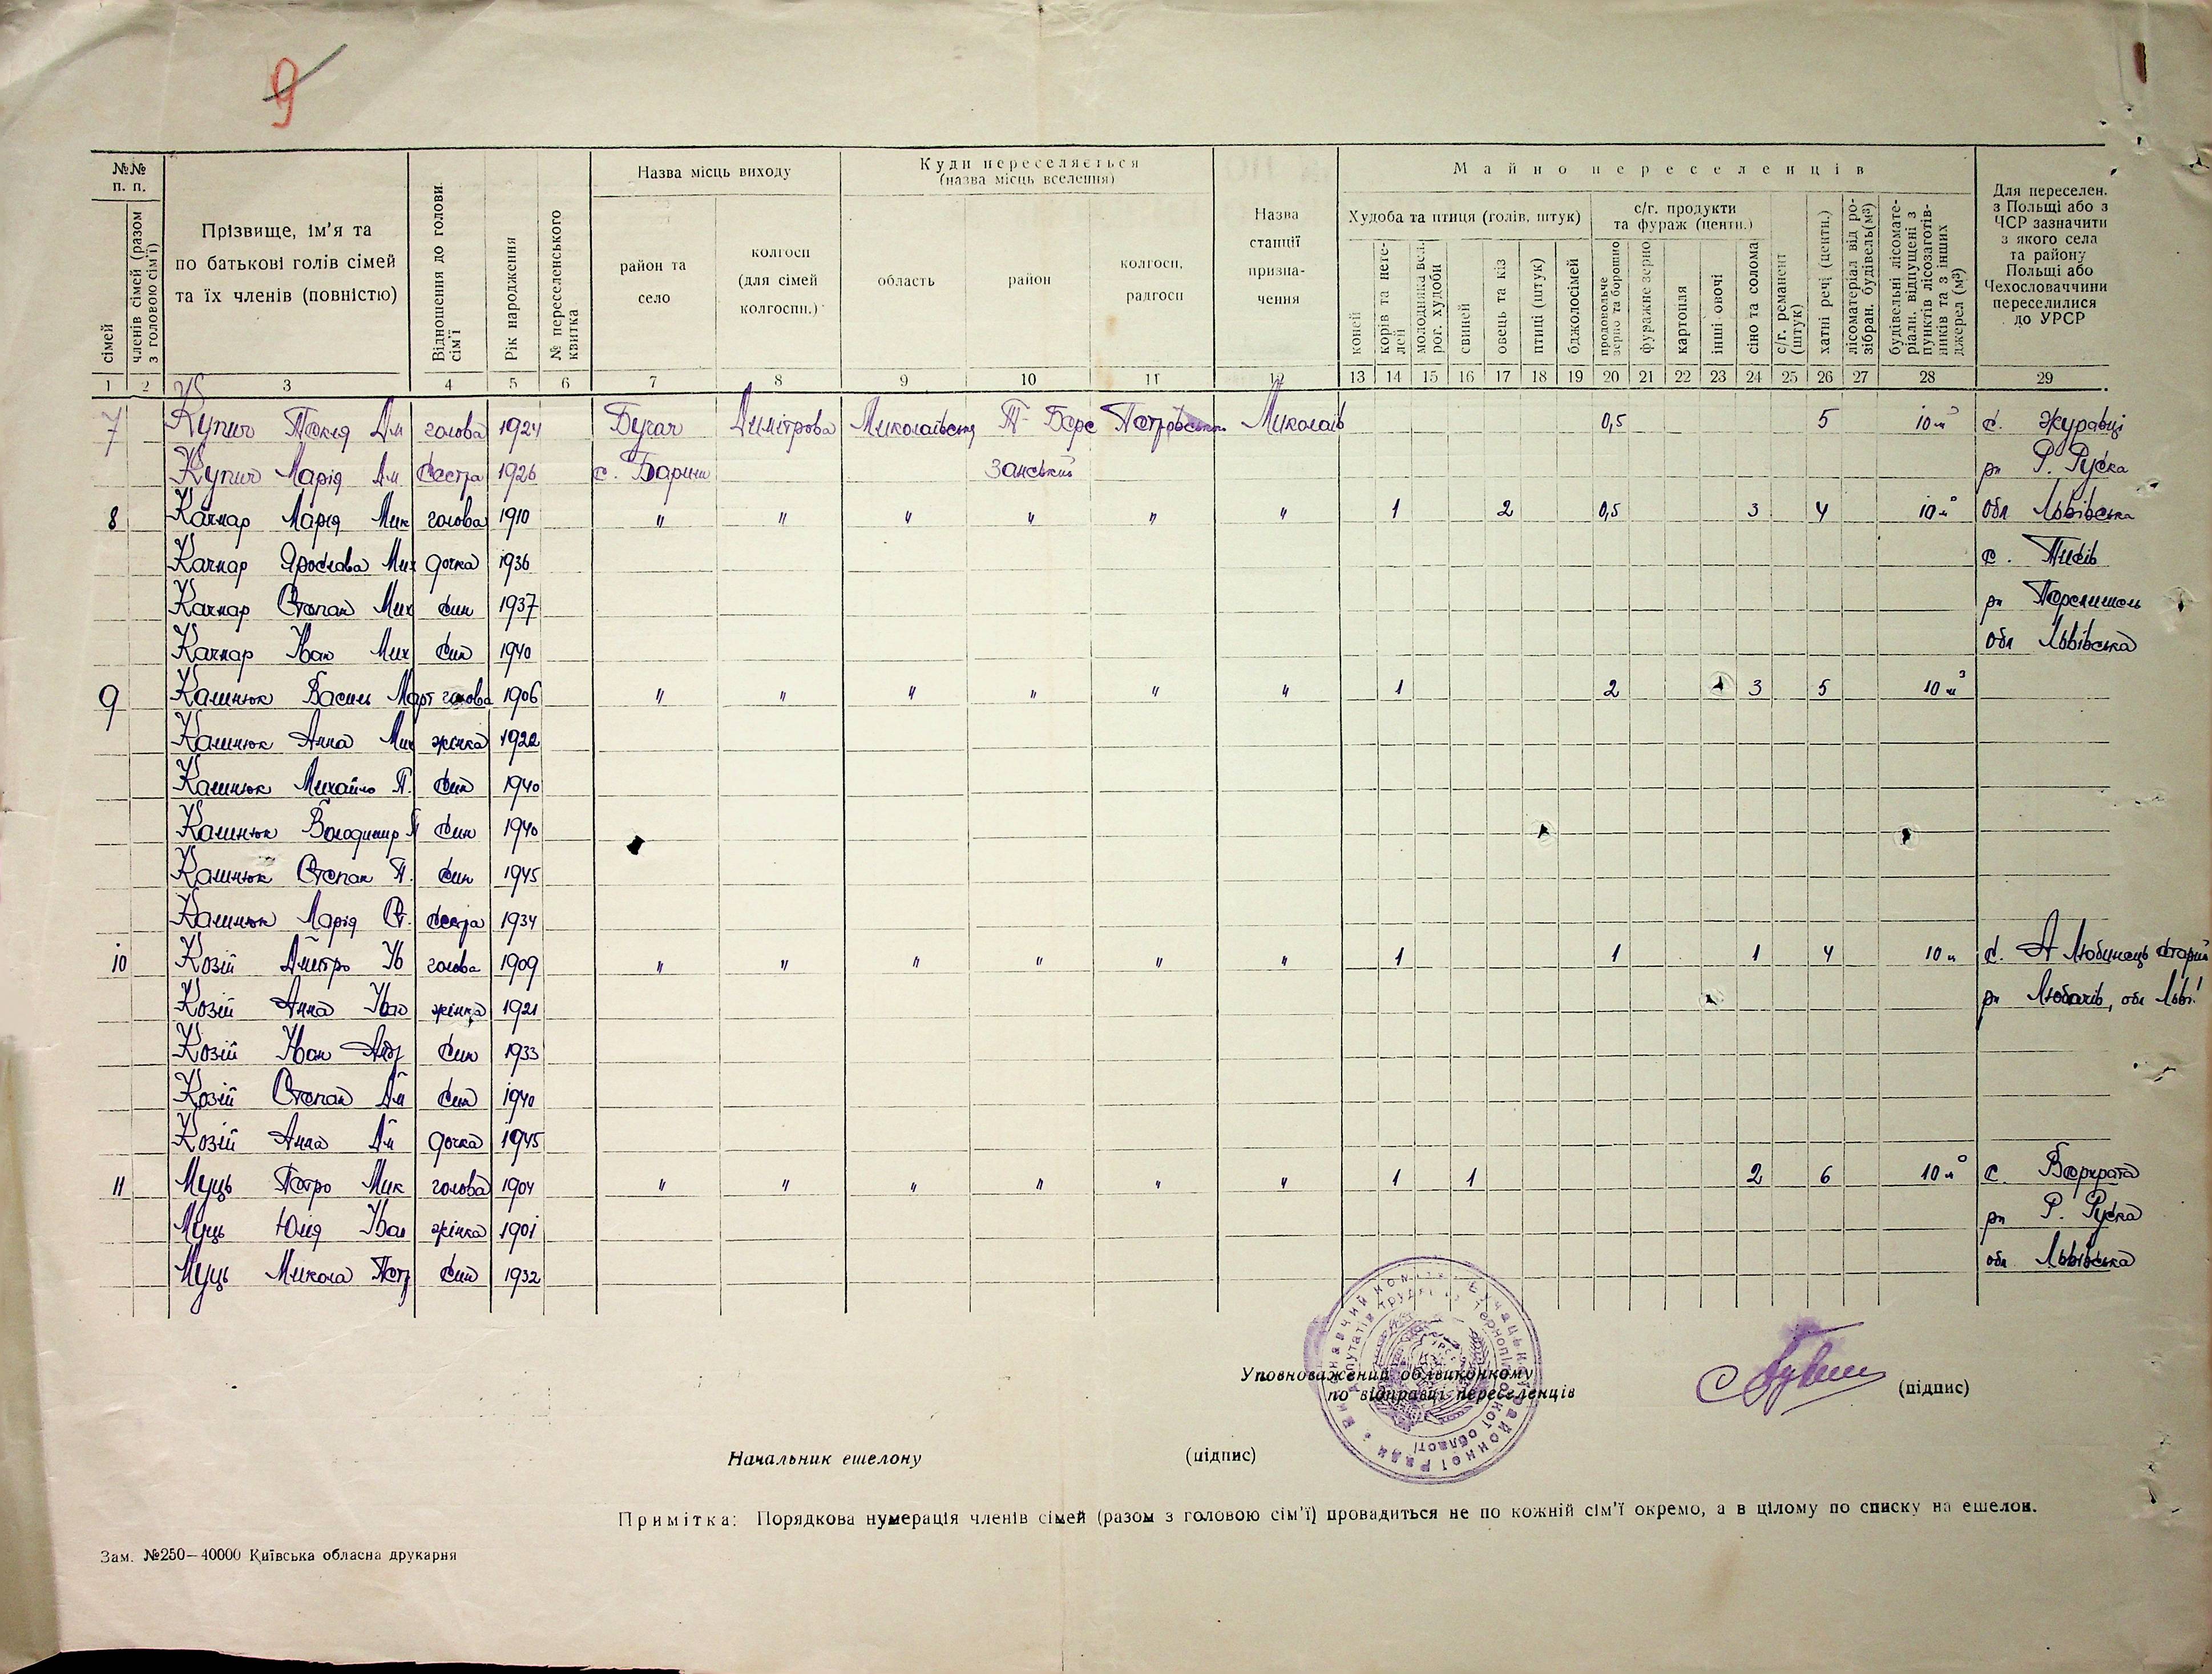 9
№№ п. п.
сімей
членів сімей (разом з головою сім'ї)
Прізвище, ім'я та по батькові голів сімей та їх членів (повністю)
Відношення до голови сім'ї
Рік народження
№ переселенського квитка
Назва місць виходу
район та село
колгосп (для сімей колгоспн.)
Куди переселяється (назва місць вселення)
область
район
колгосп, радгосп
Назва станції призначення
Майно переселенців
Худоба та птиця (голів, штук)
коней
корів та нетелей
молодняка вел. рог. худоби
свиней
овець та кіз
птиці (штук)
бджолосімей
с/г. продукти та фураж (центн.)
продовольче зерно та борошно
фуражне зерно
картопля
інші овочі
сіно та солома
с/г. реманент (штук)
хатні речі (центн.)
лісоматеріал від розібран. будівель (м³)
будівельні лісоматеріали, відпущені з пунктів лісозаготівників та з інших джерел (м³)
Для переселен. з Польщі або з ЧСР зазначити з якого села та району Польщі або Чехословаччини переселилися до УРСР
1 2 3 4 5 6 7 8 9 10 11 12 13 14 15 16 17 18 19 20 21 22 23 24 25 26 27 28 29
7 Купич Текля Дм голова 1924 Бучач Димітрова Миколаївськ Т-Бере Петрівський Миколаїв 0,5 5 10 м³ с. Журавці
Купич Марія Дм сестра 1926 с. Бариш занський рн Р. Руска
8 Качмар Марія Мик голова 1910 " " " " " " 1 2 0,5 3 4 10 м³ обл Львівська
Качмар Ярослава Мих дочка 1936 с.
Качмар Степан Мих син 1937 рн Перемишль
Качмар Іван Мих син 1940 обл Львівська
9 Калинюк Василь Март голова 1906 " " " " " " 1 2 3 5 10 м³
Калинюк Анна Мих жінка 1922
Калинюк Михайло П. син 1940
Калинюк Володимир П син 1940
Калинюк Степан П. син 1945
Калинюк Марія Ст. сестра 1934
10 Козій Дмитро Ів голова 1909 " " " " " " 1 1 1 4 10 м с. Любинець старий
Козій Анна Іван жінка 1921 рн Любачів, обл Льві.
Козій Іван Андр син 1933
Козій Степан Дм син 1940
Козій Анна Дм дочка 1945
11 Муць Петро Мик голова 1904 " " " " " " 1 1 2 6 10 м³ с. Верхрата
Муць Юлія Іван жінка 1901 рн Р. Руска
Муць Микола Петр син 1932 обл Львівська
Уповноважений облвиконкому
по відправці переселенців
(підпис)
Начальник ешелону (підпис)
Примітка: Порядкова нумерація членів сімей (разом з головою сім'ї) провадиться не по кожній сім'ї окремо, а в цілому по списку на ешелон.
Зам. №250—40000 Київська обласна друкарня